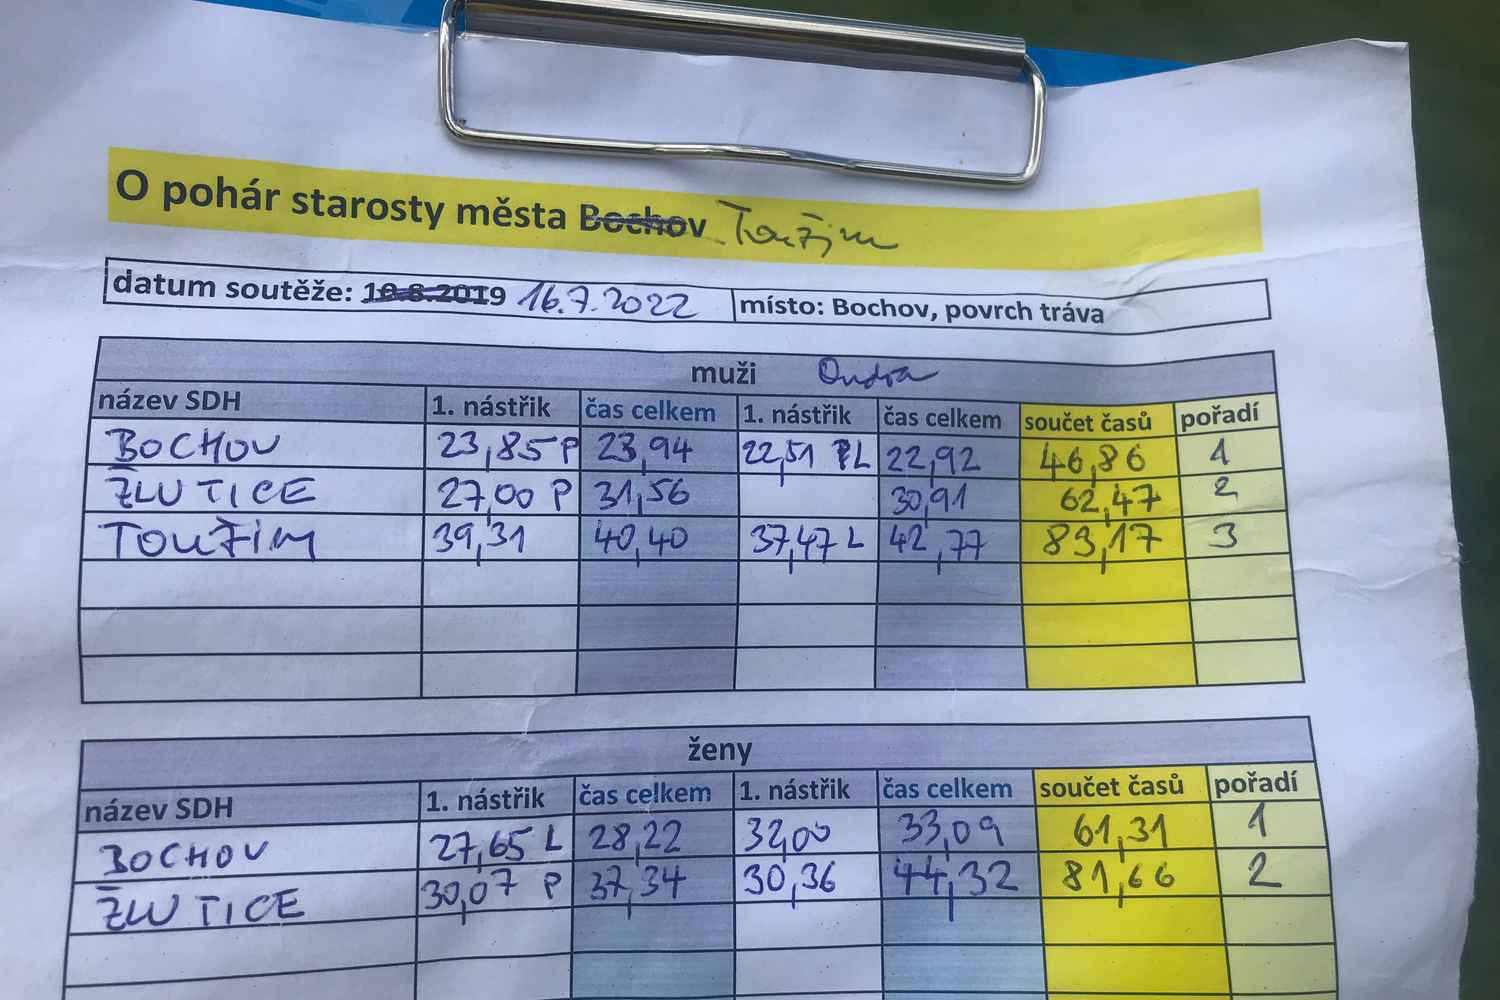 O pohár starosty města Bochov Toužim
datum soutěže: 10.8.2019 16.7.2022 místo: Bochov, povrch tráva
muži Ondra
název SDH 1. nástřik čas celkem 1. nástřik čas celkem součet časů pořadí
BOCHOV 23,85 P 23,94 22,51 PL 22,92 46,86 1
ŽLUTICE 27,00 P 31,56 30,91 62,47 2
TOUŽIM 39,31 40,40 37,47 L 42,77 83,17 3
ženy
název SDH 1. nástřik čas celkem 1. nástřik čas celkem součet časů pořadí
BOCHOV 27,65 L 28,22 32,00 33,09 61,31 1
ŽLUTICE 30,07 P 37,34 30,36 44,32 81,66 2